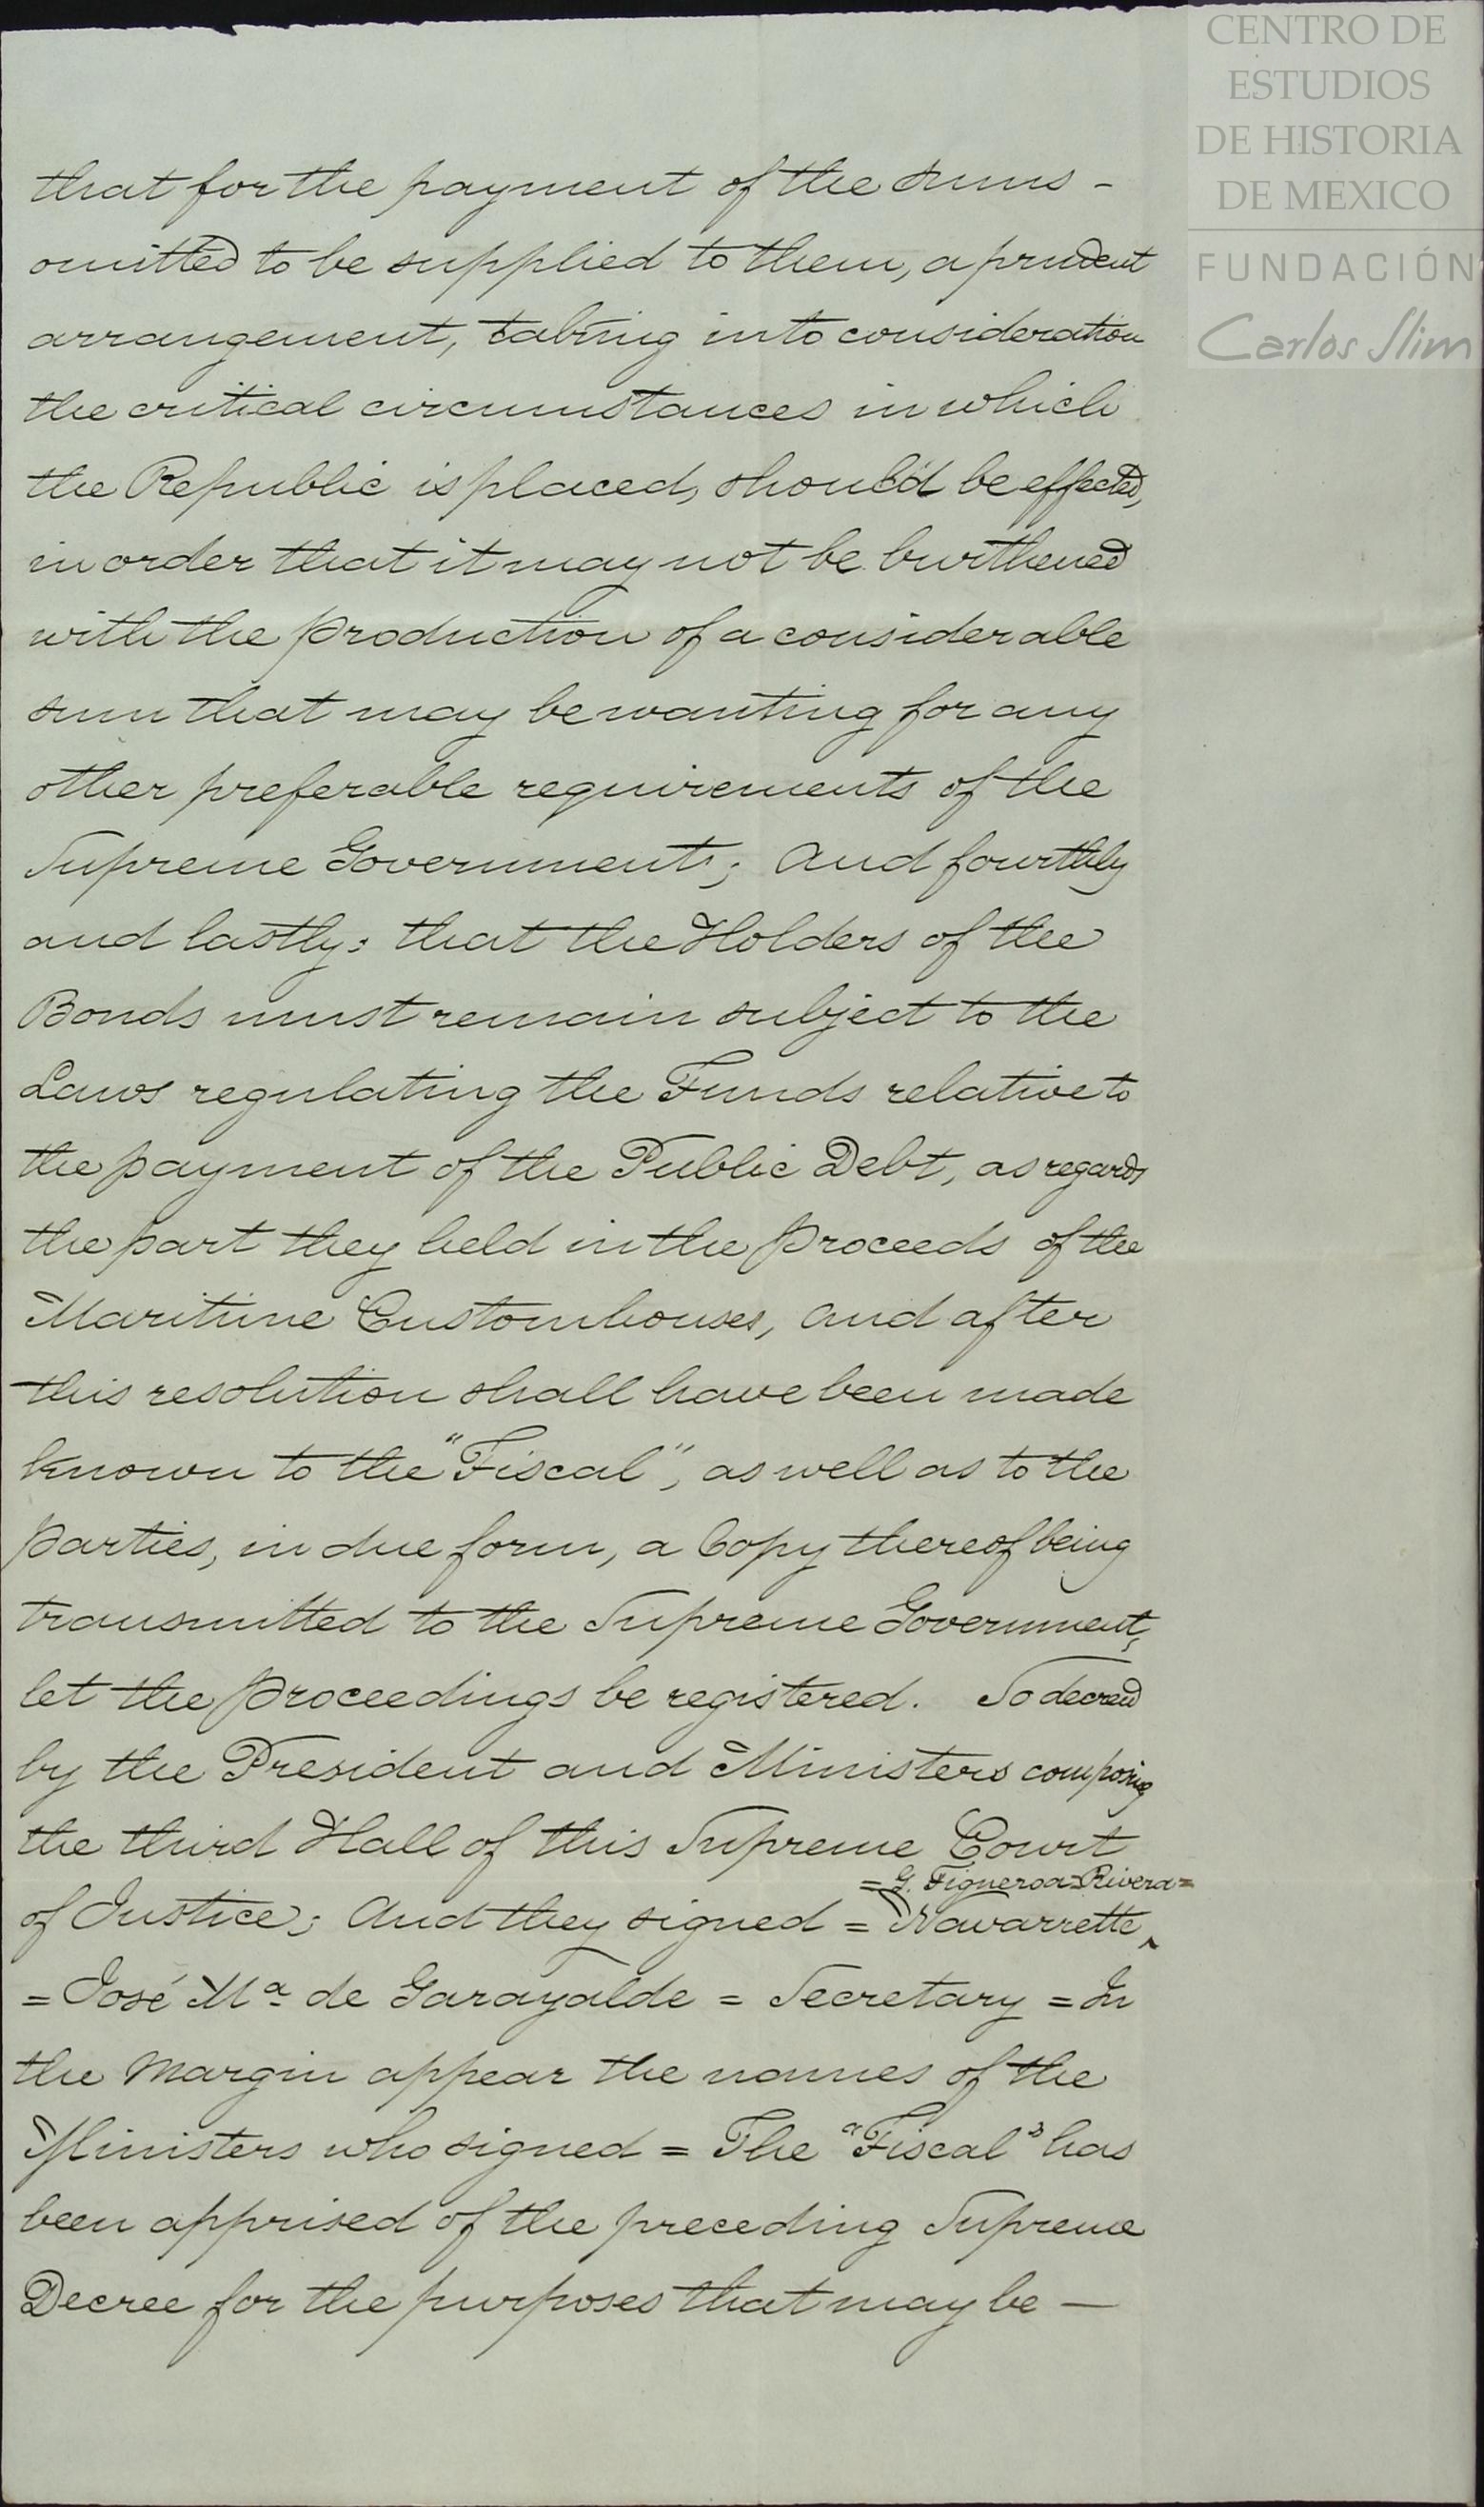 CENTRO DE
ESTUDIOS
DE HISTORIA
DE MEXICO
FUNDACIÓN
Carlos Slim
that for the payment of the sums -
omitted to be supplied to them, a prudent
arrangement, taking into consideration
the critical circumstances in which
the Republic is placed, should be effected,
in order that it may not be burthened
with the production of a considerable
sum that may be wanting for any
other preferable requirements of the
Supreme Government; And fourthly
and lastly: that the Holders of the
Bonds must remain subject to the
Laws regulating the Funds relative to
the payment of the Public Debt, as regards
the part they held in the Proceeds of the
Maritime Customhouses, and after
this resolution shall have been made
known to the "Fiscal", as well as to the
Parties, in due form, a Copy thereof being
transmitted to the Supreme Government,
let the Proceedings be registered. So decreed
by the President and Ministers composing
the third Hall of this Supreme Court
= G. Figueroa = Rivera =
of Justice; And they signed = Navarrette ^
= José Mª de Garayalde = Secretary = In
the Margin appear the names of the
Ministers who signed = The "Fiscal" has
been apprised of the preceding Supreme
Decree for the purposes that may be —